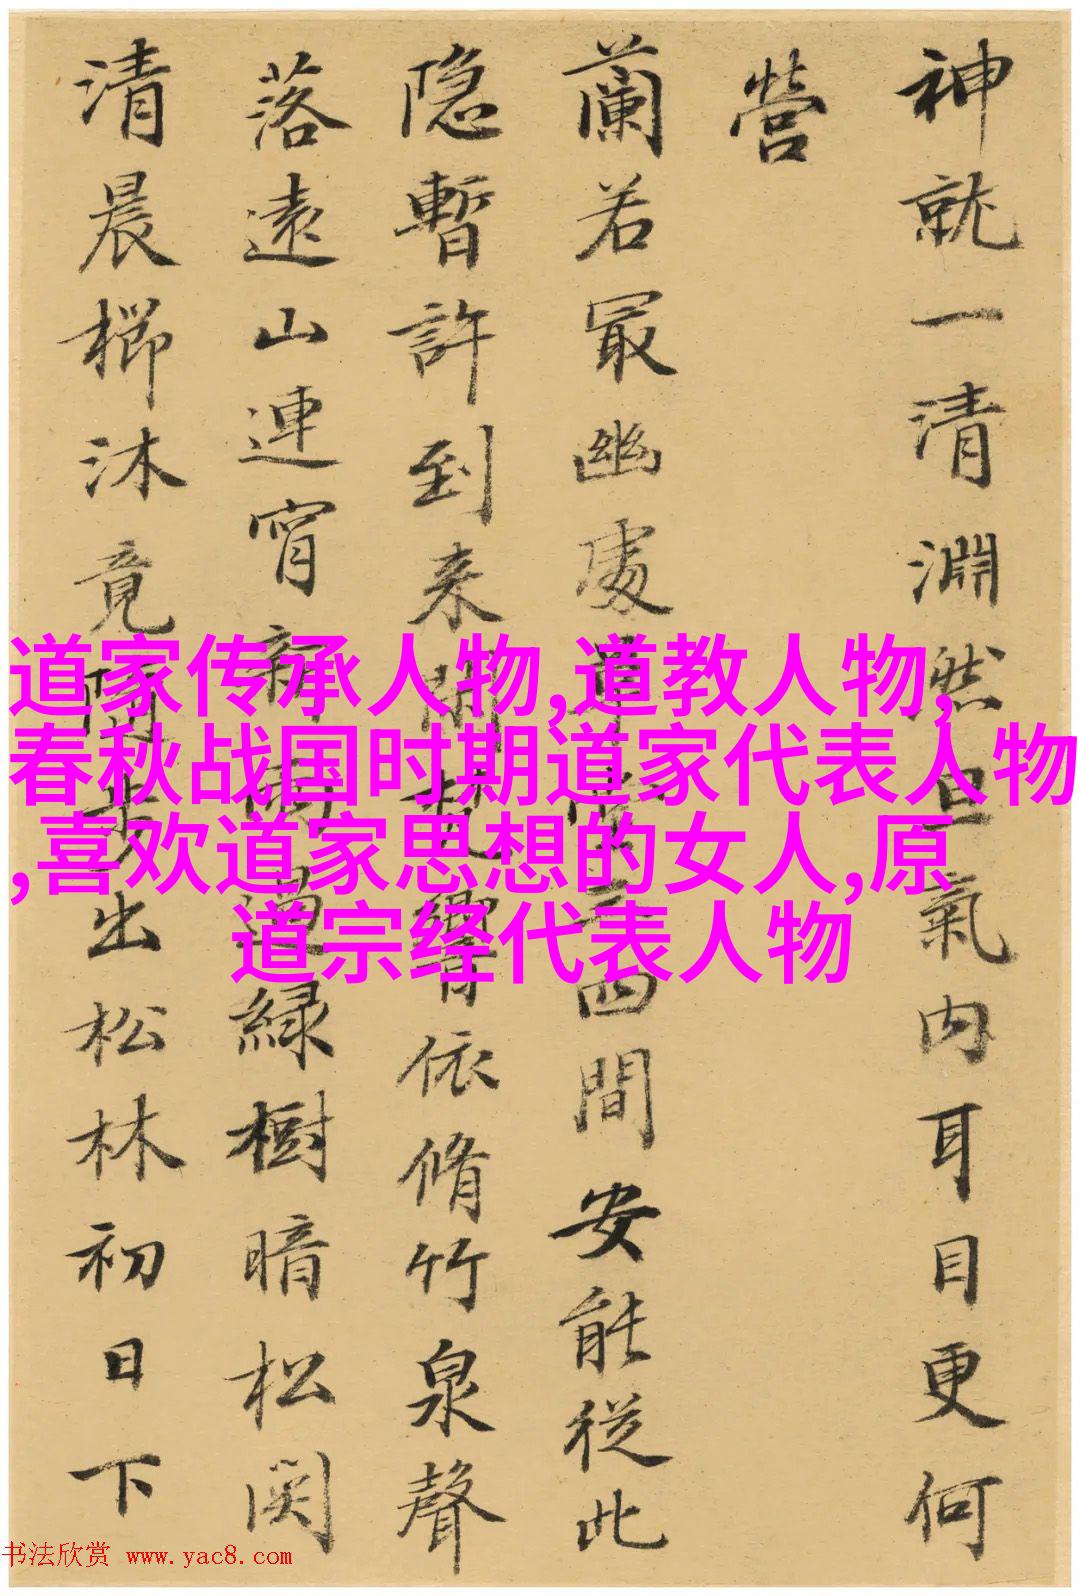 神就一清淵然旦氣内耳目更何
營
蘭若冣幽處四間安能從此
隐暫許到来響依脩竹泉聲
落遠山連宵新雨過緑樹暗松関
清晨櫛沐竟閑步出松林初日下
道家传承人物,道教人物,
春秋战国时期道家代表人物
,喜欢道家思想的女人,原
道宗经代表人物
书法欣赏 www.yac8.com